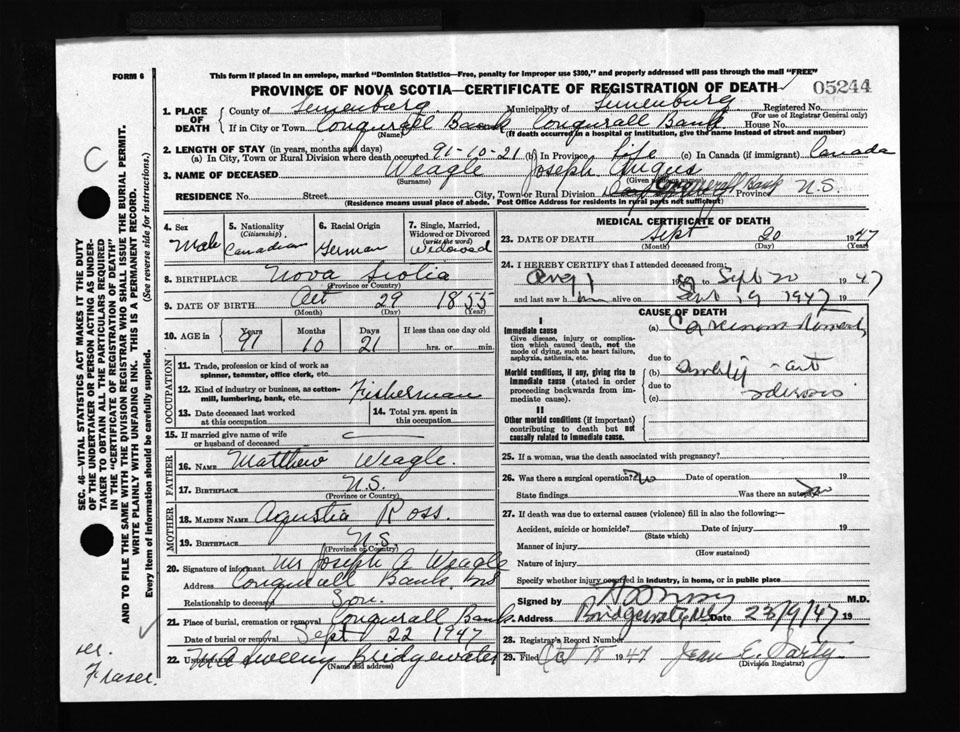 FORM 6
This form if placed in an envelope, marked "Dominion Statistics—Free, penalty for improper use $300," and properly addressed will pass through the mail "FREE"
PROVINCE OF NOVA SCOTIA—CERTIFICATE OF REGISTRATION OF DEATH 05244
1. PLACE OF DEATH
County of Lunenburg Municipality of Lunenburg Registered No.
(For use of Registrar General only)
If in City or Town Conqurall Bank Conqurall Bank House No.
(Name) (If death occurred in a hospital or institution, give the name instead of street and number)
2. LENGTH OF STAY (in years, months and days)
(a) In City, Town or Rural Division where death occurred 91-10-21 (b) In Province Life (c) In Canada (if immigrant) Canada
3. NAME OF DECEASED Weagle Joseph Angus
(Surname) (Given or names)
RESIDENCE No. Street City, Town or Rural Division Conquerall Bank Province N.S.
(Residence means usual place of abode. Post Office Address for residents in rural parts not sufficient)
4. Sex
Male
5. Nationality
(Citizenship)
Canadian
6. Racial Origin
German
7. Single, Married, Widowed or Divorced
(write the word)
Widowed
8. BIRTHPLACE Nova Scotia
(Province or Country)
9. DATE OF BIRTH Oct 29 1855
(Month) (Day) (Year)
10. AGE in
Years Months Days If less than one day old
91 10 21 hrs. or min.
OCCUPATION
11. Trade, profession or kind of work as
spinner, teamster, office clerk, etc.
12. Kind of industry or business, as cotton-
mill, lumbering, bank, etc. Fisherman
13. Date deceased last worked
at this occupation
14. Total yrs. spent in
this occupation
15. If married give name of wife
or husband of deceased —
FATHER
16. NAME Matthew Weagle.
17. BIRTHPLACE N.S.
(Province or Country)
MOTHER
18. MAIDEN NAME Agustia Ross.
19. BIRTHPLACE N.S.
(Province or Country)
20. Signature of informant Mr Joseph A Weagle
Address Conqurall Bank NS
Relationship to deceased Son.
21. Place of burial, cremation or removal Conqurall Bank.
Date of burial or removal Sept 22 1947
22. UNDERTAKER Sweeny Bridgewater
(Name and address)
MEDICAL CERTIFICATE OF DEATH
23. DATE OF DEATH Sept 20 1947
(Month) (Day) (Year)
24. I HEREBY CERTIFY that I attended deceased from:
Aug Sept 20 1947
and last saw h im alive on Sept 19 1947 19
CAUSE OF DEATH
I
Immediate cause
Give disease, injury or complica-
tion which caused death, not the
mode of dying, such as heart failure,
asphyxia, asthenia, etc.
(a) Carcinoma
due to
Morbid conditions, if any, giving rise to
immediate cause (stated in order
proceeding backwards from im-
mediate cause).
(b)
due to
(c)
II
Other morbid conditions (if important)
contributing to death but not
causally related to immediate cause.
25. If a woman, was the death associated with pregnancy?
26. Was there a surgical operation? No Date of operation 19
State findings Was there an autopsy No
27. If death was due to external causes (violence) fill in also the following:—
Accident, suicide or homicide? Date of injury 19
(State which)
Manner of injury
(How sustained)
Nature of injury
Specify whether injury occurred in industry, in home, or in public place
Signed by M.D.
Bridgewater Date 23/9/47 19
28. Registrar's Record Number
29. Filed Oct 18 1947 Jean E. Sarty
(Division Registrar)
SEC. 46—VITAL STATISTICS ACT MAKES IT THE DUTY
OF THE UNDERTAKER OR PERSON ACTING AS UNDER-
TAKER TO OBTAIN ALL THE PARTICULARS REQUIRED
IN THE "CERTIFICATE OF REGISTRATION OF DEATH"
AND TO FILE THE SAME WITH THE DIVISION REGISTRAR WHO SHALL ISSUE THE BURIAL PERMIT.
WRITE PLAINLY WITH UNFADING INK. THIS IS A PERMANENT RECORD.
Every item of information should be carefully supplied. (See reverse side for instructions.)
C
Fraser.